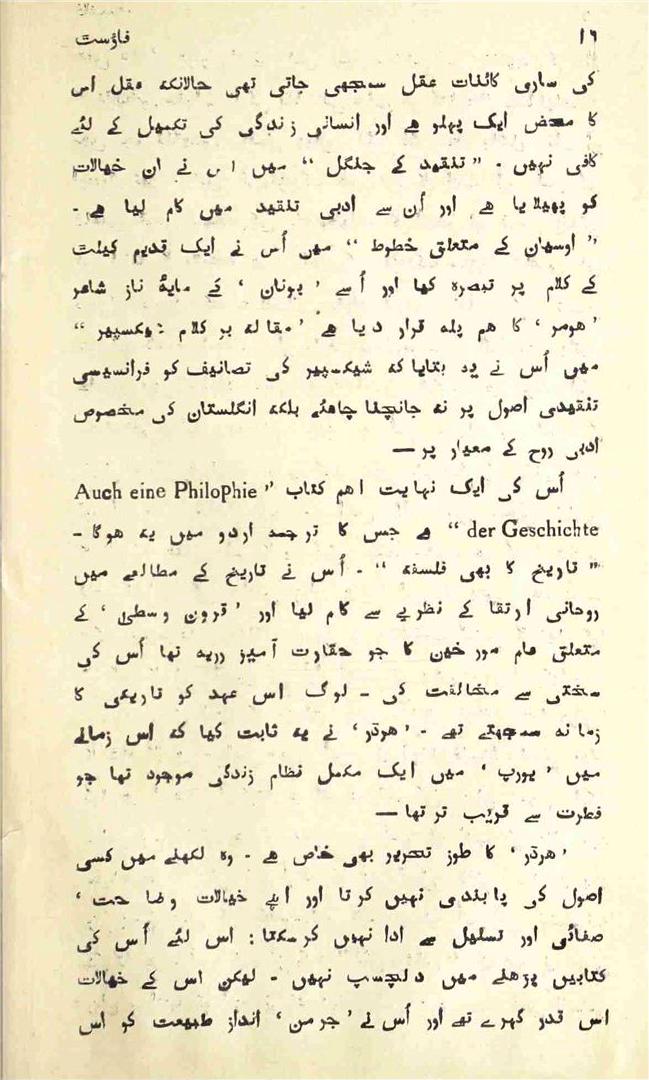 ۱۶ فاؤست
کی ساری کائنات عقل سمجھی جاتی تھی حالانکہ عقل اس
کا محض ایک پہلو ہے اور انسانی زندگی کی تکمیل کے لئے
کافی نہیں - ” تنقید کے جنگل “ میں اس نے ان خیالات
کو پھیلایا ہے اور اُن سے ادبی تنقید میں کام لیا ہے -
” اوسیان کے متعلق خطوط “ میں اُس نے ایک قدیم کیلٹ
کے کلام پر تبصرہ کیا اور اُسے ’ یونان ‘ کے مایۂ ناز شاعر
’ ھومر ‘ کا ھم پلہ قرار دیا ہے ’ مقالہ بر کلام شیکسپیر “
میں اُس نے یہ بتایا کہ شیکسپیر کی تصانیف کو فرانسیسی
تنقیدی اصول پر نہ جانچنا چاھئے بلکہ انگلستان کی مخصوص
ادبی روح کے معیار پر —
اُس کی ایک نہایت اھم کتاب ” Auch eine Philophie
der Geschichte “ ہے جس کا ترجمہ اردو میں یہ ھوگا -
” تاریخ کا بھی فلسفہ “ - اُس نے تاریخ کے مطالعے میں
روحانی ارتقا کے نظریے سے کام لیا اور ’ قرون وسطیٰ ‘ کے
متعلق عام مورخین کا جو حقارت آمیز رویہ تھا اُس کی
سختی سے مخالفت کی - لوگ اس عہد کو تاریکی کا
زمانہ سمجھتے تھے - ’ ھرڈر ‘ نے یہ ثابت کیا کہ اس زمانے
میں ’ یورپ ‘ میں ایک مکمل نظام زندگی موجود تھا جو
فطرت سے قریب تر تھا —
’ ھرڈر ‘ کا طرز تحریر بھی خاص ہے - وہ لکھنے میں کسی
اصول کی پابندی نہیں کرتا اور اپنے خیالات وضاحت ‘
صفائی اور تسلسل سے ادا نہیں کرسکتا : اس لئے اُس کی
کتابیں پڑھنے میں دلچسپ نہیں - لیکن اس کے خیالات
اس قدر گہرے تھے اور اُس نے ’ جرمن ‘ انداز طبیعت کو اس